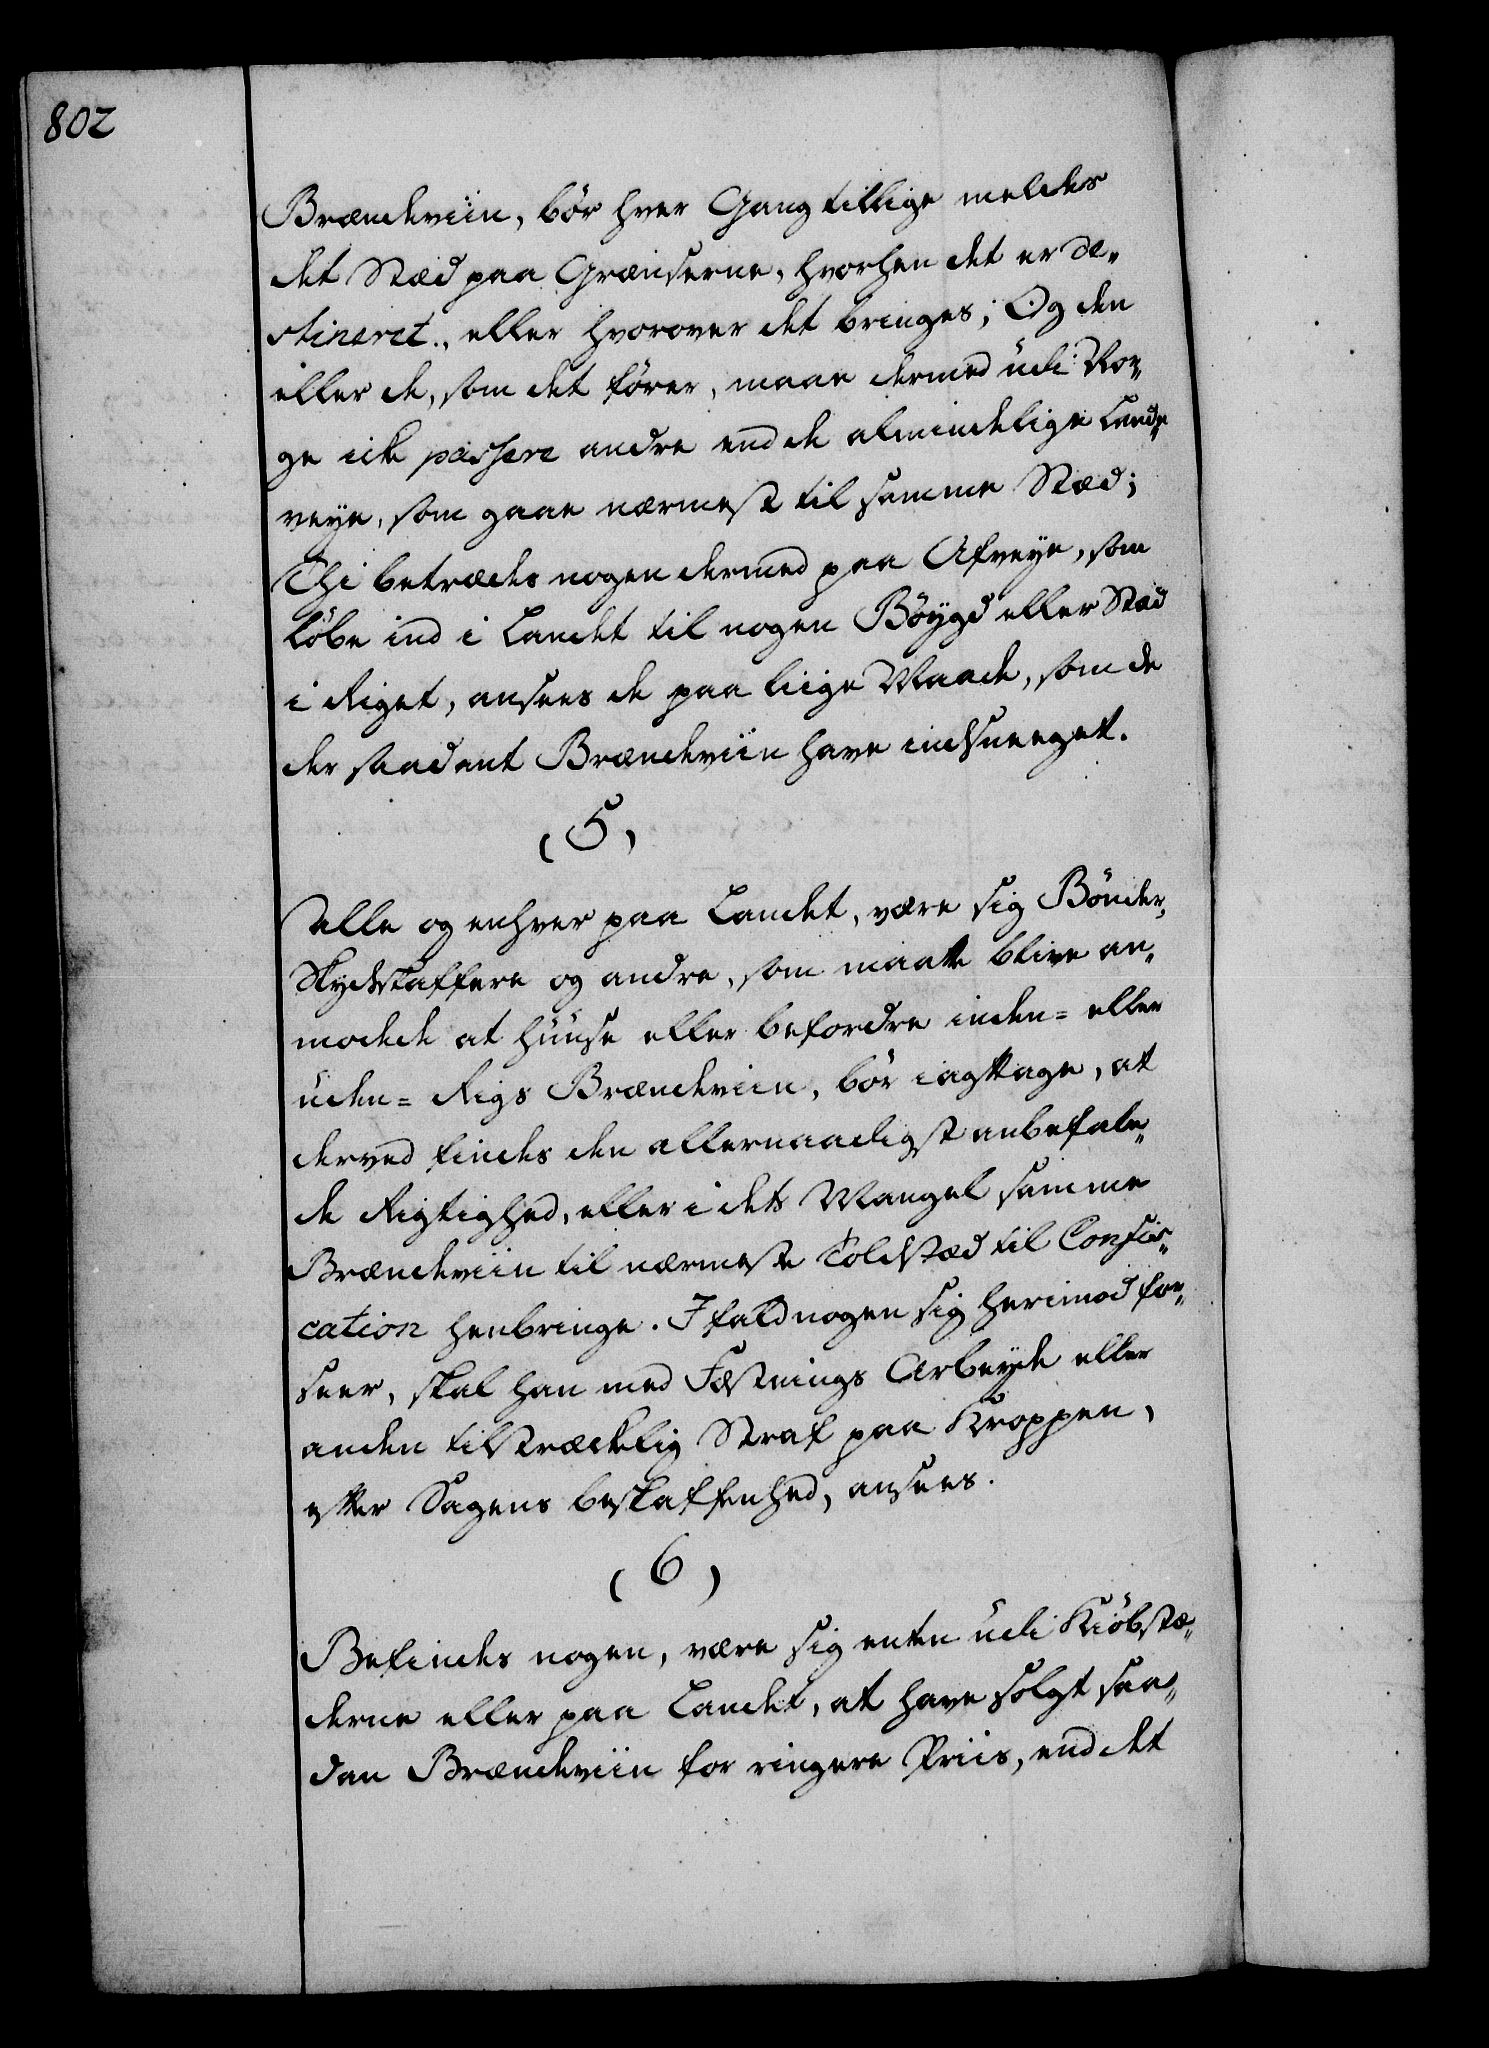 802
Brændeviin, bør hver Gang tillige meldes
det Stæd paa Grændserne, hvorhen det er de„
stineret., eller hvorover det bringes; Og den
eller de, som det fører, maae dermed udi Nor„
ge ick passere andre end de almindelige Land„
veye, som gaae nærmest til samme Stæd;
Thi betrædes nogen dermed paa Afveye, som
løbe ind i Landet til nogen Bøygd eller Stæd
i Riget, ansees de paa liige Maade, som de
der saadant Brændeviin have indsneeget.
(5)
Alle og enhver paa Landet, være sig Bønder,
Skydskaffere og andre, som maatte blive an„
modede at huuse eller befordre inden= eller
uden= Rigs Brændeviin, bør iagttage, at
derved findes den allernaadigst anbefale„
de Rigtighed, eller i dets Mangel samme
Brændeviin til nærmeste Toldstæd til Confis„
cation henbringe. Ifald nogen sig herimod for„
seer, skal han med Fæstnings Arbeyde eller
anden tilstrækkelig Straf paa Kroppen,
efter Sagens beskaffenhed, ansees.
(6)
Befindes nogen, være sig enten udi Kiøbstæ„
derne eller paa Landet, at have solgt saa„
dan Brændeviin for ringere Priis, end det